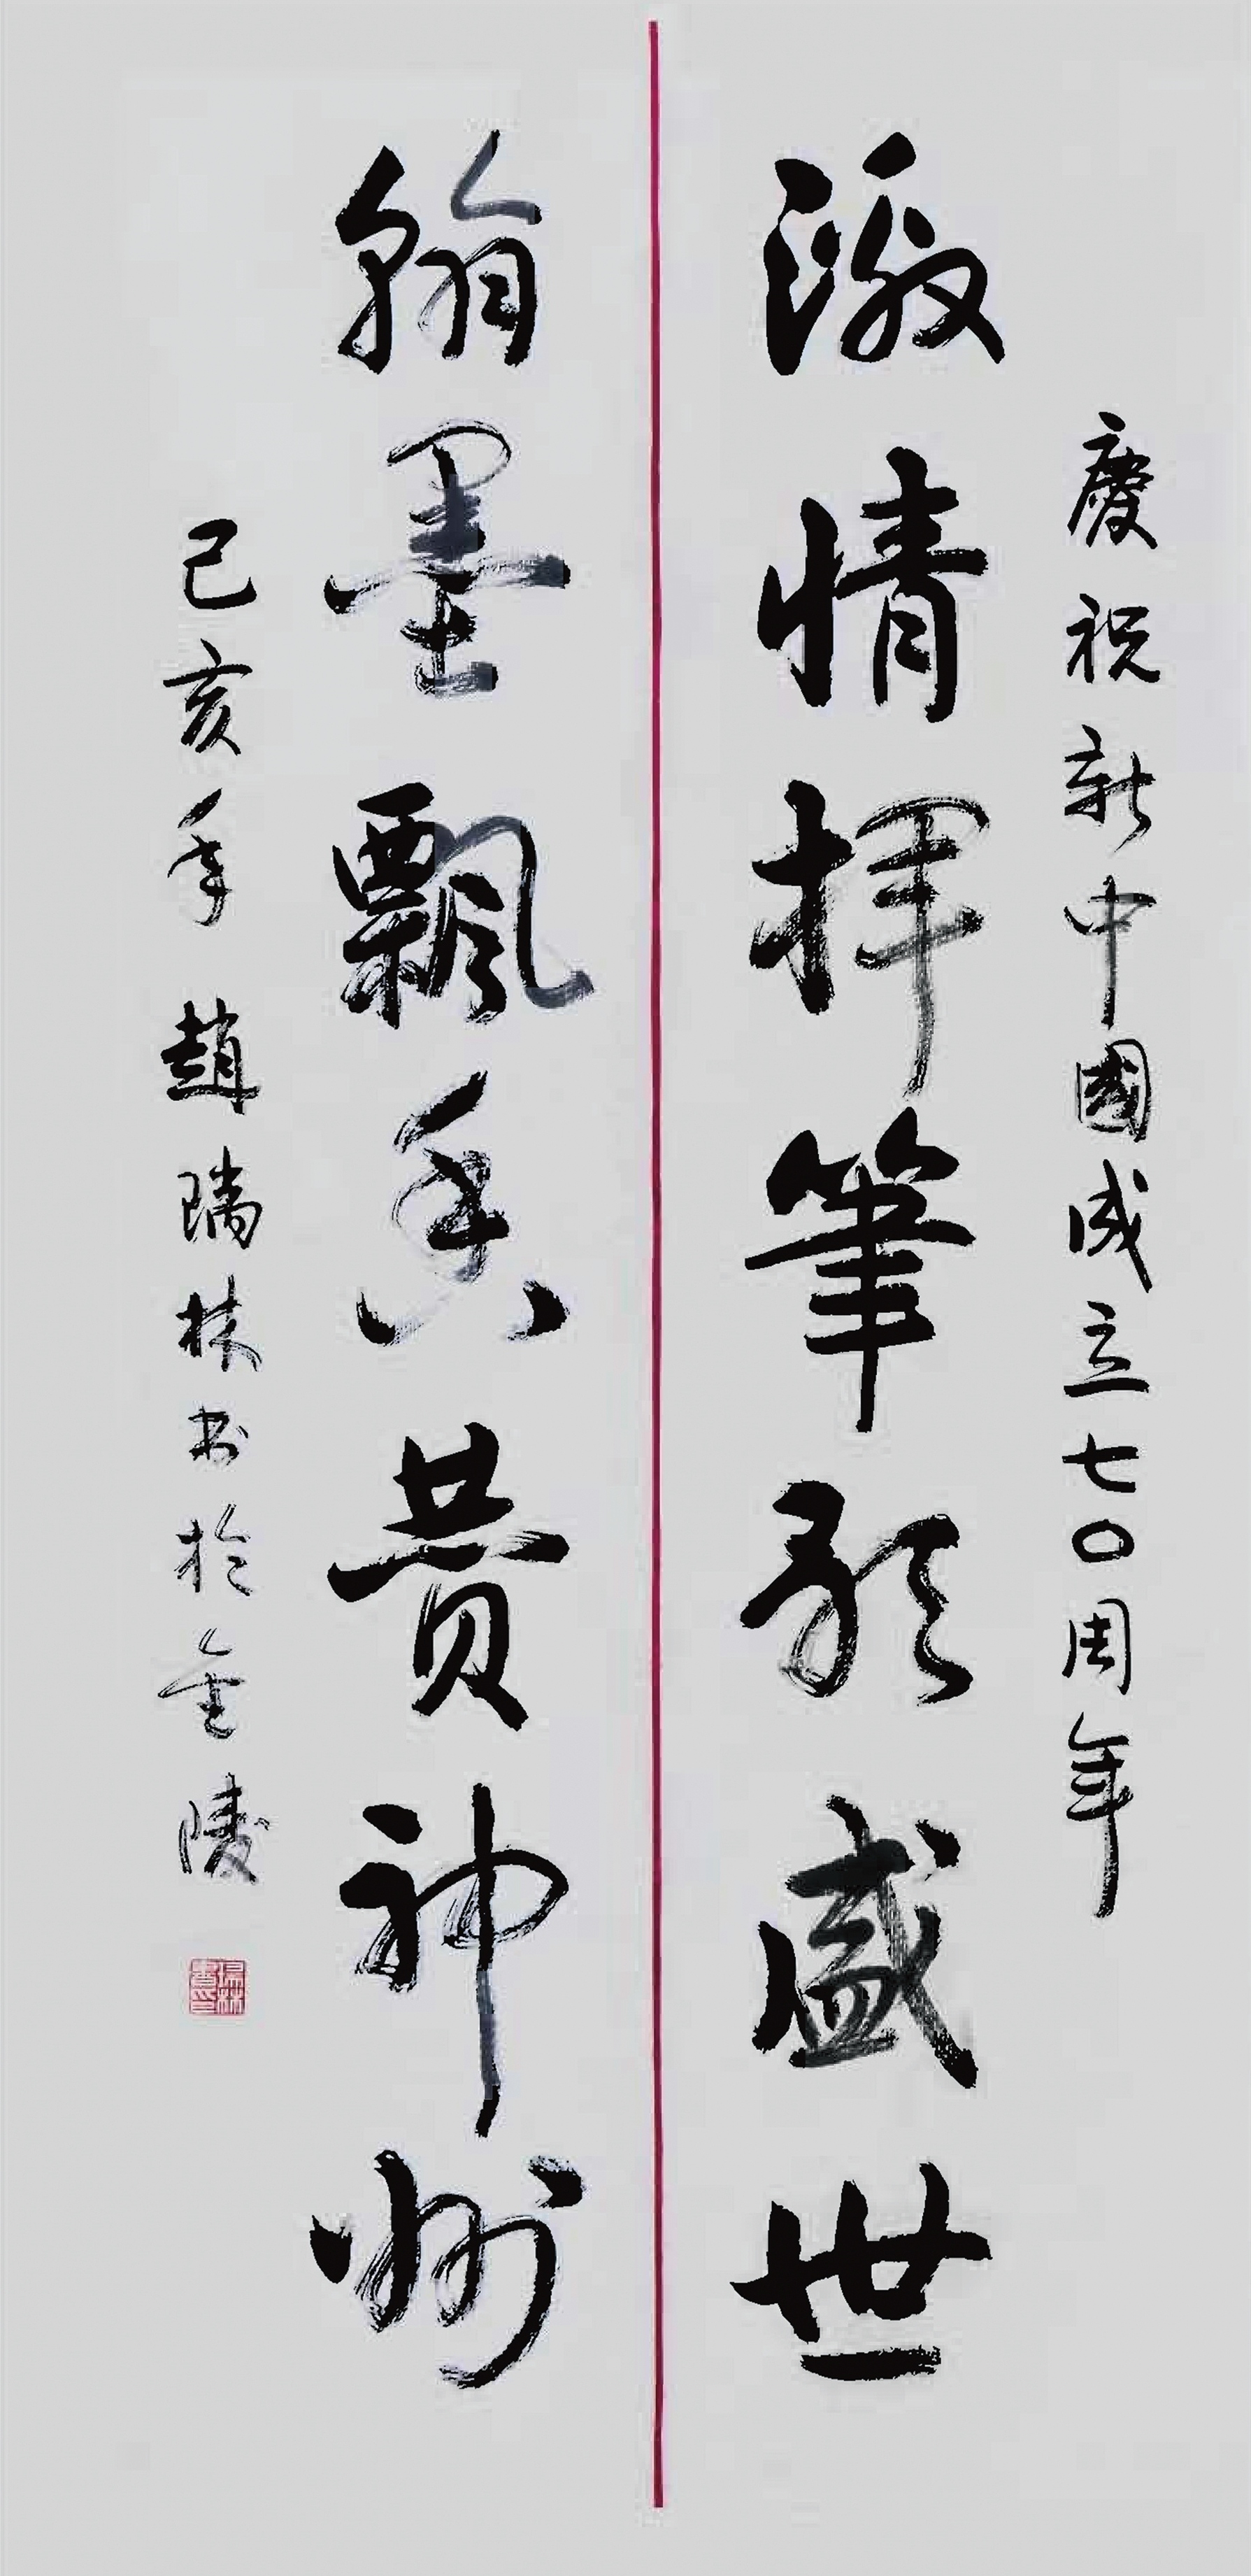 慶祝新中國成立七〇周年
激情揮筆歌盛世
翰墨飄香贊神州
己亥年 趙瑞林书於金陵